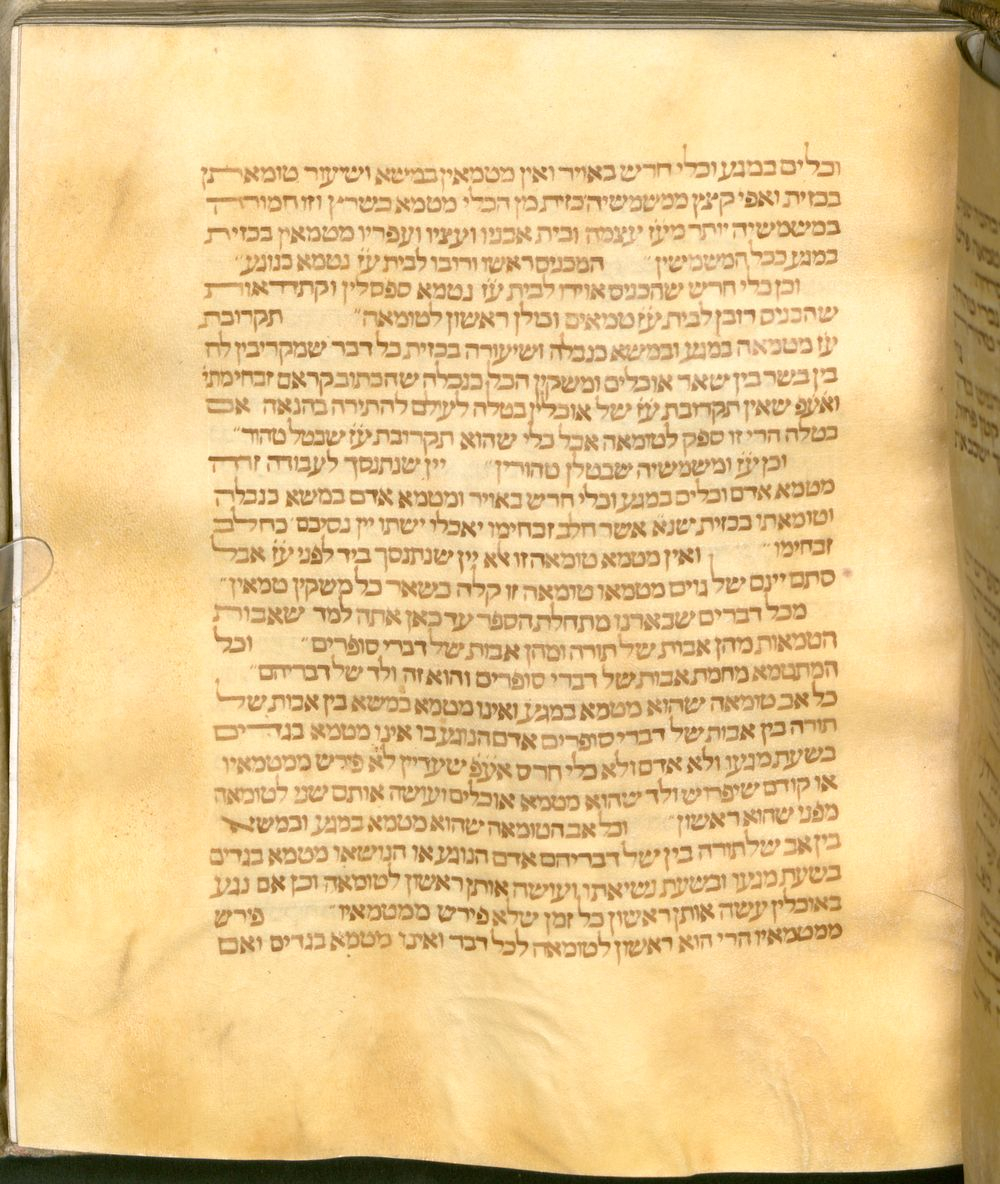 וכלים במגע וכלי חרש באויר ואין מטמאין במשא ושיעור טומאתן
בכזית ואפי קצץ ממשמשיה כזית מן הכלי מטמא כשרץ וזו חמורה
במשמשיה יותר מע׳ז עצמה ובית אבניו ועציו ועפריו מטמאין בכזית
במגע ככל המשמשין״ המכניס ראשו ורובו לבית ע׳ז נטמא כנוגע״
וכן כלי חרש שהכניס אוירו לבית ע׳ז נטמא ספסלין וקתדראות
שהכניס רובן לבית ע׳ז טמאים וכולן ראשון לטומאה״ תקרובת
ע׳ז מטמאה במגע ובמשא כנבלה ושיעורה בכזית כל דבר שמקריבין לה
בין בשר בין שאר אוכלים ומשקין הכל כנבלה שהכתוב קראם זבחי מתי
ואע׳פ שאין תקרובת ע׳ז של אוכלין בטלה לעולם להתירה בהנאה אם
בטלה הרי זו ספק לטומאה אבל כלי שהוא תקרובת ע׳ז שבטל טהור״
וכן ע׳ז ומשמשיה שבטלן טהורין״ יין שנתנסך לעבודה זרה
מטמא אדם וכלים במגע וכלי חרש באויר ומטמא אדם במשא כנבלה
וטומאתו בכזית שנ׳א אשר חלב זבחימו יאכלו ישתו יין נסיכם כחלב
זבחימו״ ואין מטמא טומאה זו לא יין שנתנסך ביד לפני ע׳ז אבל
סתם יינם של גוים מטמאו טומאה זו קלה כשאר כל משקין טמאין״
מכל דברים שבארנו מתחלת הספר עד כאן אתה למד שאבות
הטמאות מהן אבות של תורה ומהן אבות של דברי סופרים״ וכל
המתטמא מחמת אבות של דברי סופרים והוא זה ולד של דבריהם״
כל אב טומאה שהוא מטמא במגע ואינו מטמא במשא בין אבות של
תורה בין אבות של דברי סופרים אדם הנוגע בו אינו מטמא בגדים
בשעת מגעו ולא אדם ולא כלי חרס אע׳פ שעדיין לא פירש ממטמאיו
או קודם שיפרוש ולד שהוא מטמא אוכלים ועושה אותם שני לטומאה
מפני שהוא ראשון״ וכל אב הטומאה שהוא מטמא במגע ובמשא
בין אב של תורה בין של דבריהם אדם הנוגע או הנושאו מטמא בגדים
בשעת מגעו ובשעת נשיאתו ועושה אותן ראשון לטומאה וכן אם נגע
באוכלין עשה אותן ראשון כל זמן שלא פירש ממטמאיו״ פירש
ממטמאיו הרי הוא ראשון לטומאה לכל דבר ואינו מטמא בגדים ואם